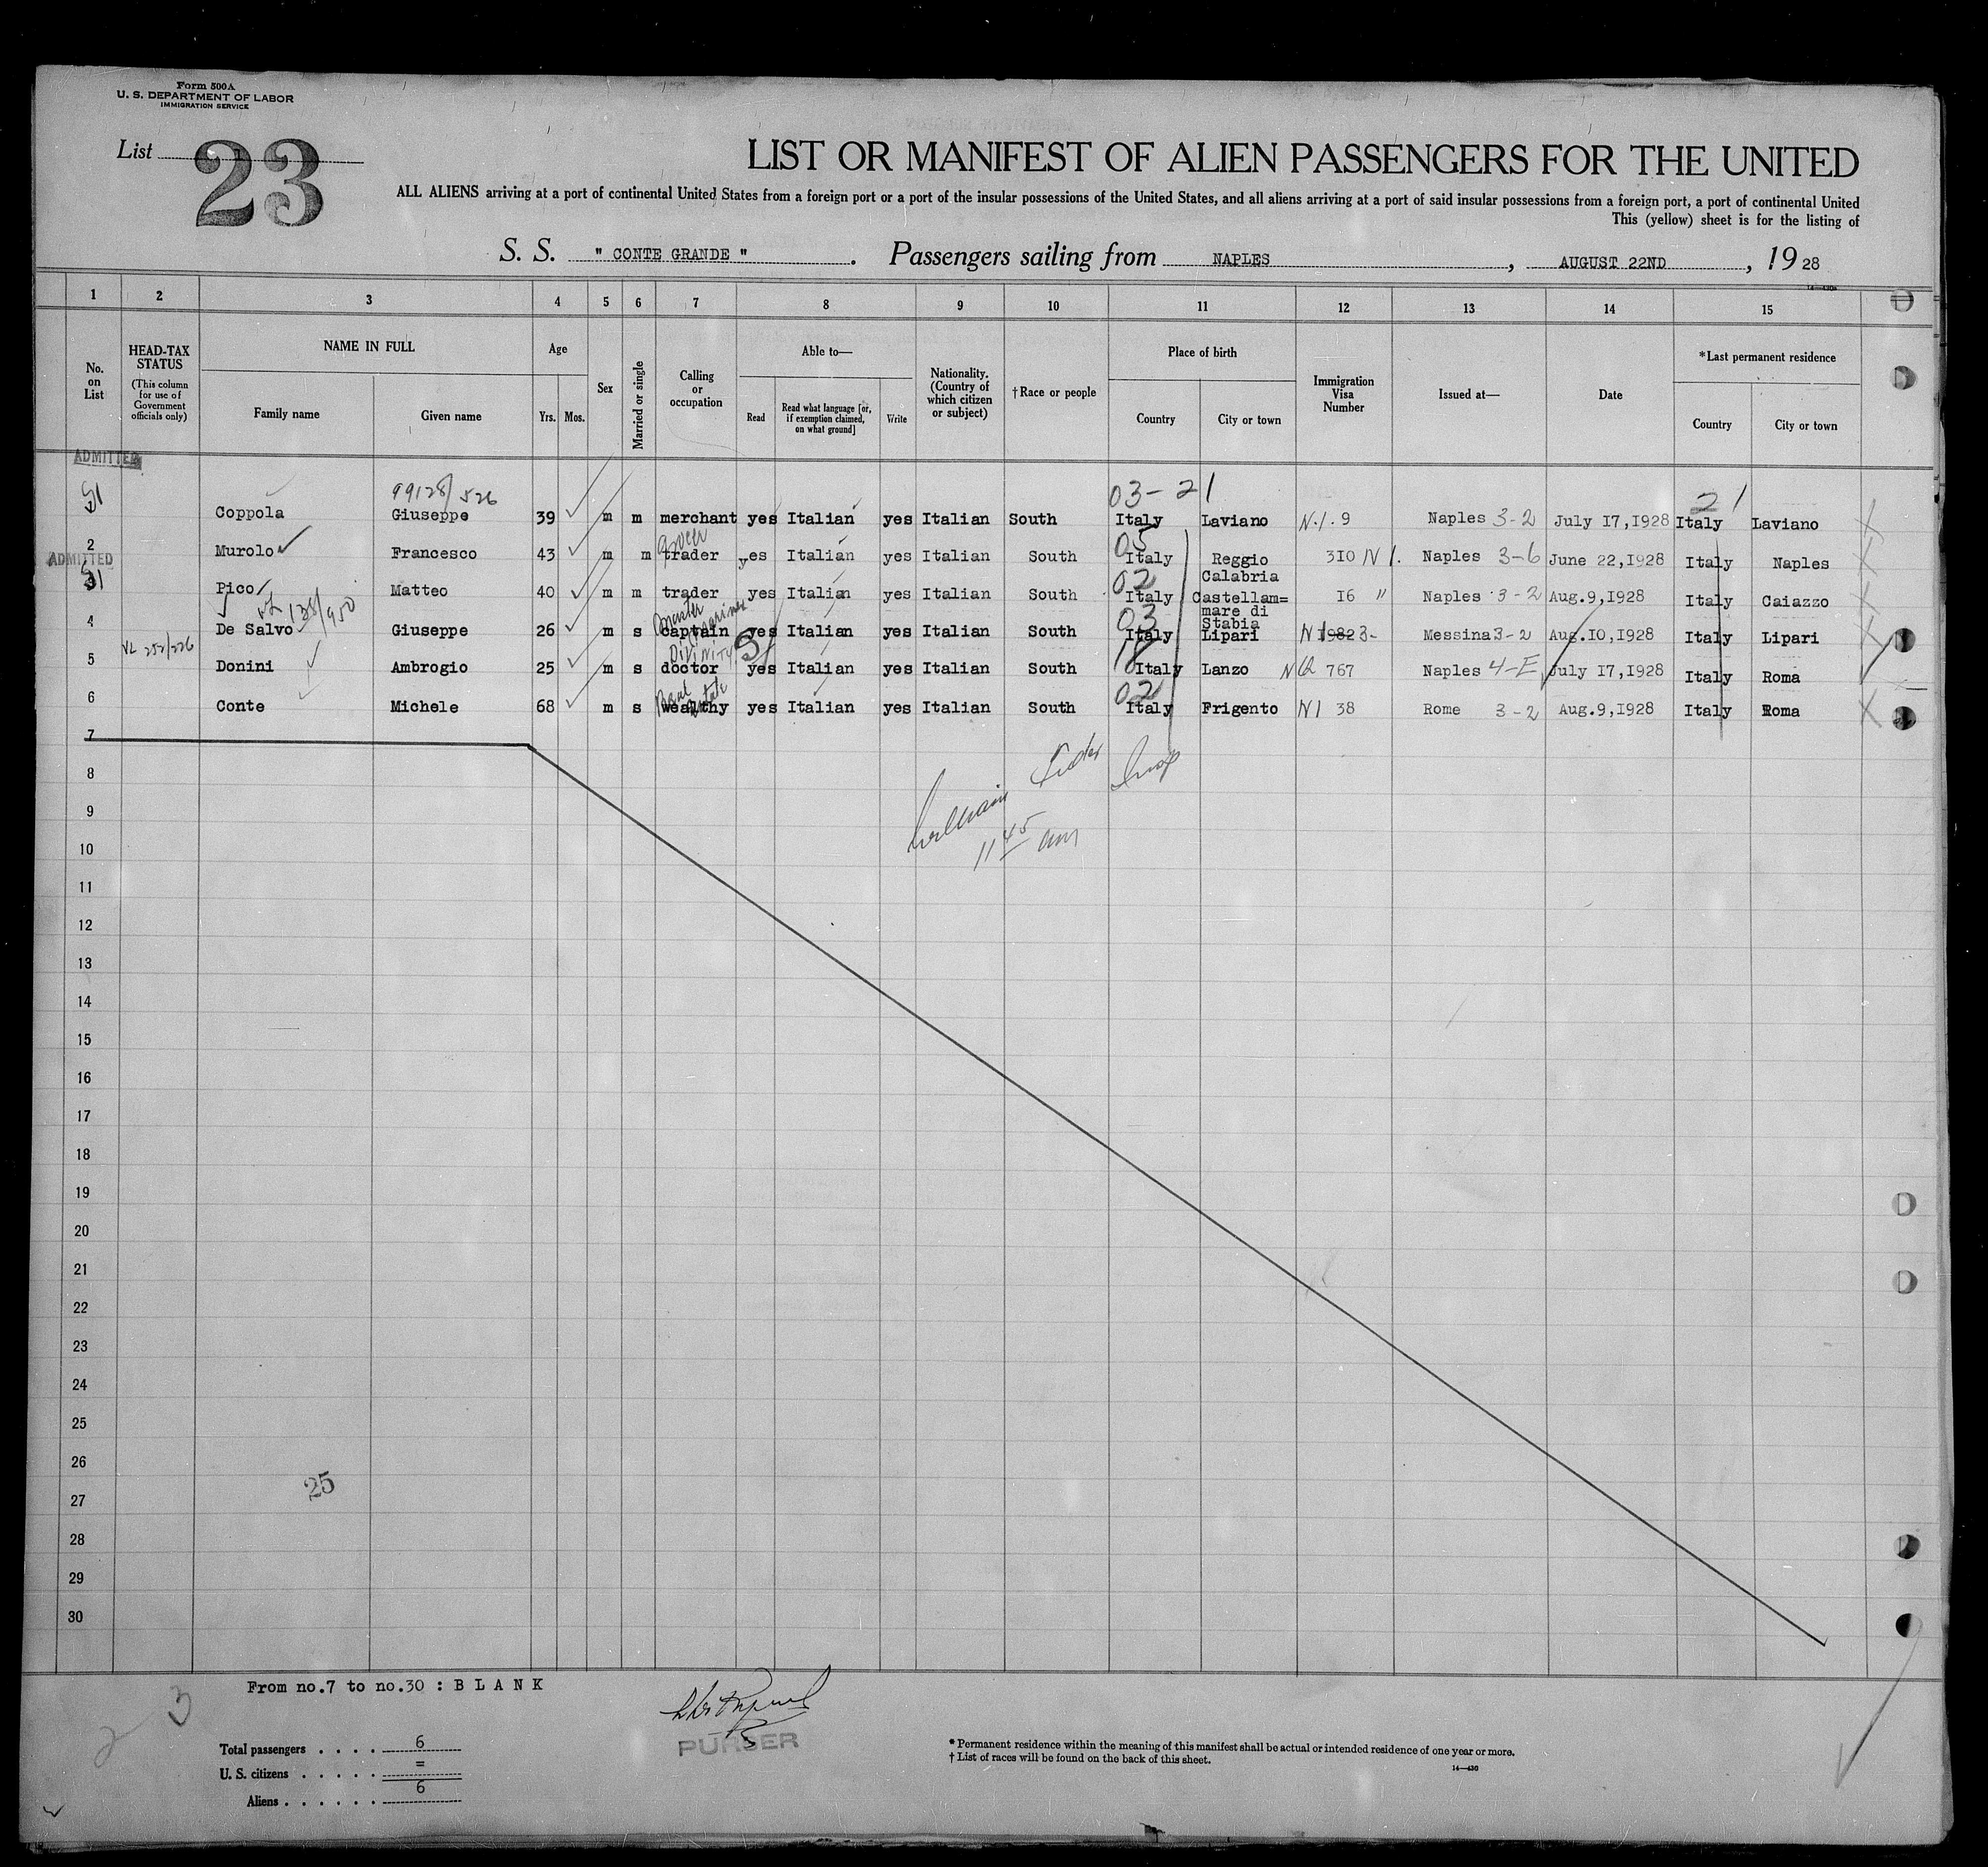 Form 500A
U. S. DEPARTMENT OF LABOR
IMMIGRATION SERVICE
List 23
LIST OR MANIFEST OF ALIEN PASSENGERS FOR THE UNITED
ALL ALIENS arriving at a port of continental United States from a foreign port or a port of the insular possessions of the United States, and all aliens arriving at a port of said insular possessions from a foreign port, a port of continental United
This (yellow) sheet is for the listing of
S. S. " CONTE GRANDE " . Passengers sailing from NAPLES , AUGUST 22ND , 19 28
14—430a
1 2 3 4 5 6 7 8 9 10 11 12 13 14 15
No. on List
HEAD-TAX STATUS
(This column for use of Government officials only)
NAME IN FULL
Family name Given name
Age
Yrs. Mos.
Sex
Married or single
Calling or occupation
Able to—
Read Read what language [or, if exemption claimed, on what ground] Write
Nationality. (Country of which citizen or subject)
†Race or people
Place of birth
Country City or town
Immigration Visa Number
Issued at—
Date
*Last permanent residence
Country City or town
ADMITTED
99128/526 03-21 21
Coppola Giuseppe 39 m m merchant yes Italian yes Italian South Italy Laviano N.I. 9 Naples 3-2 July 17,1928 Italy Laviano
05
2 Murolo Francesco 43 m m trader yes Italian yes Italian South Italy Reggio Calabria 310 N I. Naples 3-6 June 22,1928 Italy Naples
ADMITTED
02
Pico Matteo 40 m m trader yes Italian yes Italian South Italy Castellam= mare di Stabia 16 " Naples 3-2 Aug.9,1928 Italy Caiazzo
138/950 Master Mariner 03
4 De Salvo Giuseppe 26 m s captain yes Italian yes Italian South Italy Lipari N 1982 3- Messina 3-2 Aug.10,1928 Italy Lipari
VL 252/226 DIVINITY S
5 Donini Ambrogio 25 m s doctor yes Italian yes Italian South Italy Lanzo NQ 767 Naples 4-E July 17,1928 Italy Roma
Real Estate 02
6 Conte Michele 68 m s wealthy yes Italian yes Italian South Italy Frigento N I 38 Rome 3-2 Aug.9,1928 Italy Roma
7
8
William Insp
9
11 45 am
10
11
12
13
14
15
16
17
18
19
20
21
22
23
24
25
26
25
27
28
29
30
From no.7 to no.30 : B L A N K
2 3
PURSER
Total passengers . . . . 6
U. S. citizens . . . . . =
Aliens . . . . . . 6
* Permanent residence within the meaning of this manifest shall be actual or intended residence of one year or more.
† List of races will be found on the back of this sheet.
14—430